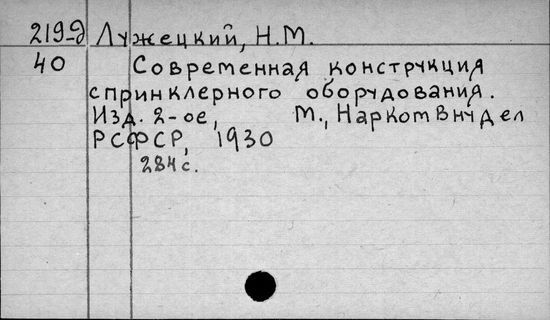 219-д Лужецкий, Н.М.
40 Современная конструкция
спринклерного оборудования.
Изд. 2-ое, М., НаркомВнудел
РСФСР, 1930
284 с.